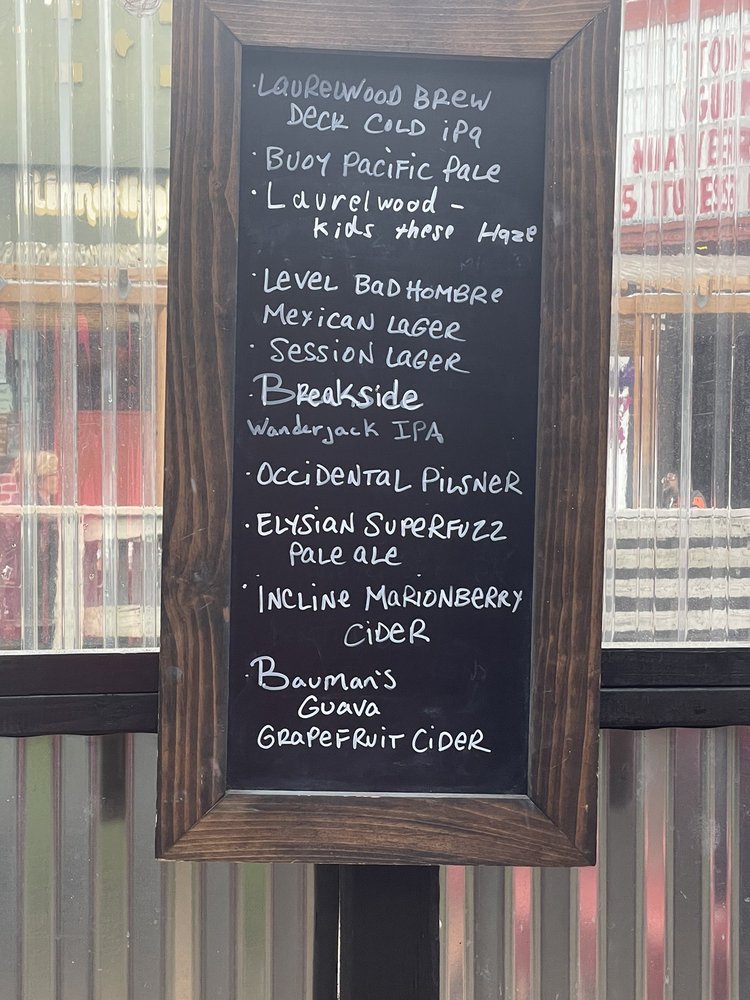 ·LAURELWOOD BREW
DECK COLD iPA
·BUOY PACIFIC PALE
·Laurelwood -
kids these Haze
·LEVEL BAD HOMBRE
MEXICAN LAGER
·SESSION LAGER
·Breakside
Wanderjack IPA
·OCCIDENTAL PILSNER
·ELYSIAN SUPERFUZZ
PALE ALE
·INCLINE MARIONBERRY
CIDER
·Bauman's
Guava
GRAPEFRUIT CIDER